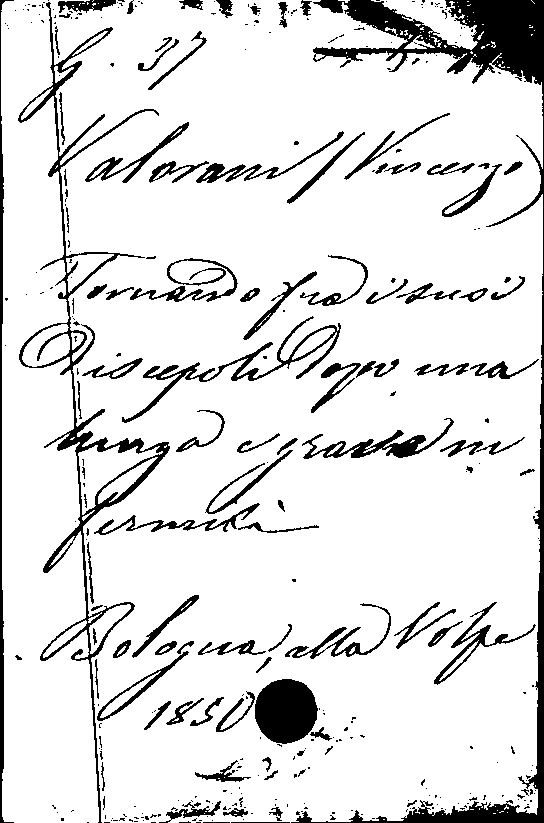 G. 37
Valorani (Vincenzo)
Tornando fra i suoi
Discepoli Dopo una
lunga e grave in
fermità
Bologna, alla Volpe
1850